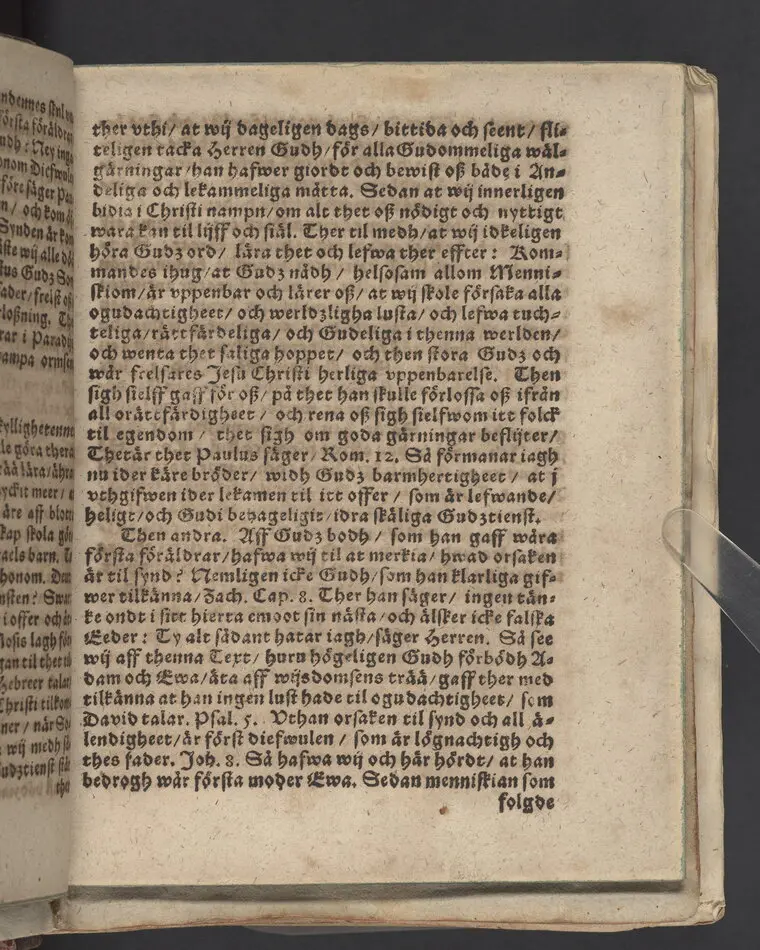 ndennes
första föräldrar
udh: Ney
onom Diefwul
före säger Pau
n/ och kom
Synden är kom
åste wij alle dö
tus Gudz Son
ader/ frelst oß
loßning. Th
rar i Paradij
ampa ormsen
kyllighetenne
le göra thera
åå lära/ ähra
yckit meer/
äre aff blott
kap skola gö
aels barn.
honom. Da
nsten: Swar
i offer och
Mosis lagh för
gan til thet
Hebreer talar
Christi tilkom
ner/ när
wij medh så
udztienst
the
ther vthi/ at wij dageligen dags/ bittida och seent/ fli⸗
teligen tacka Herren Gudh/ för alla Gudommeliga wäl⸗
gärningar/ han hafwer giordt och bewist oß både i An⸗
deliga och lekammeliga måtta. Sedan at wij innerligen
bidia i Christi nampn/ om alt thet oß nödigt och nyttigt
wara kan til lijff och siäl. Ther til medh/ at wij idkeligen
höra Gudz ord/ lära thet och lefwa ther effter: Kom⸗
mandes ihug/ at Gudz nådh/ helsosam allom Menni⸗
skiom/ är vppenbar och lärer oß/ at wij skole försaka alla
ogudachtigheet/ och werldzligha lusta/ och lefwa tuch⸗
teliga/ rättfärdeliga/ och Gudeliga i thenna werlden/
och wenta thet saliga hoppet/ och then stora Gudz och
wår frelsares Jesu Christi herliga vppenbarelse. Then
sigh sielff gaff för oß/ på thet han skulle förlossa oß ifrån
all orättfärdigheet/ och rena oß sigh sielfwom itt folck
til egendom/ thet sigh om goda gärningar beflijter/
Thetär thet Paulus säger/ Rom. 12. Så förmanar iagh
nu ider käre bröder/ widh Gudz barmhertigheet/ at j
vthgifwen ider lekamen til itt offer/ som är lefwande/
heligt/ och Gudi behageligit/ idra skäliga Gudztienst.
Then andra. Aff Gudz bodh/ som han gaff wåra
första föräldrar/ hafwa wij til at merkia/ hwad orsaken
är til synd? Nemligen icke Gudh/ som han klarliga gif⸗
wer tilkänna/ Zach. Cap. 8. Ther han säger/ ingen tän⸗
ke ondt i sitt hierta emoot sin nästa/ och älsker icke falska
Eeder: Ty alt sådant hatar iagh/ säger Herren. Så see
wij aff thenna Text/ huru högeligen Gudh förbödh A⸗
dam och Ewa/ äta aff wijsdomsens trää/ gaff ther med
tilkänna at han ingen lust hade til ogudachtigheet/ som
David talar. Psal. 5. Vthan orsaken til synd och all ä⸗
lendigheet/ är först diefwulen/ som är lögnachtigh och
thes fader. Joh. 8. Så hafwa wij och här hördt/ at han
bedrogh wår första moder Ewa. Sedan menniskian som
folgde